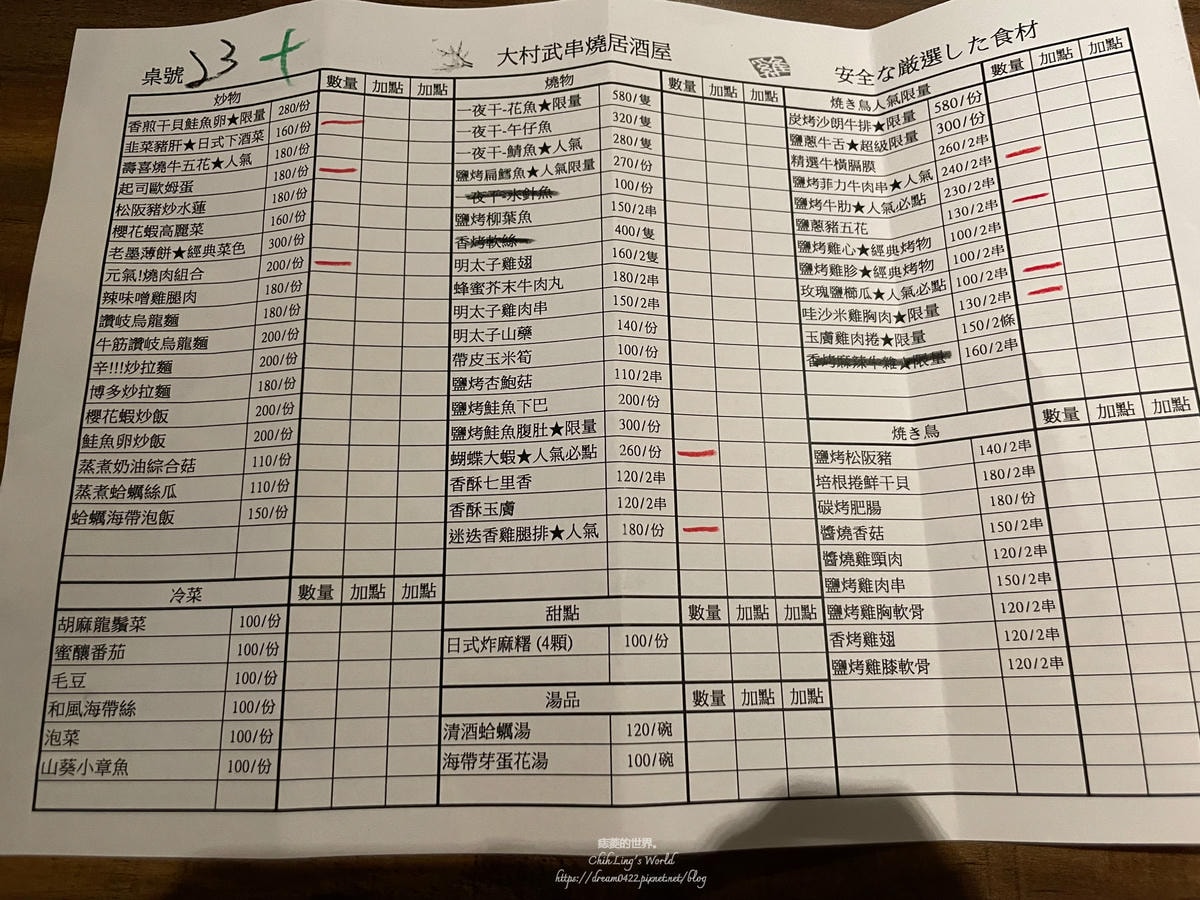 桌號 23 +
大村武串燒居酒屋
安全な厳選した食材
炒物 數量 加點 加點
香煎干貝鮭魚卵★限量 280/份
韭菜豬肝★日式下酒菜 160/份
壽喜燒牛五花★人氣 180/份
起司歐姆蛋 180/份
松阪豬炒水蓮 180/份
櫻花蝦高麗菜 160/份
老墨薄餅★經典菜色 300/份
元氣!燒肉組合 200/份
辣味噌雞腿肉 180/份
讚岐烏龍麵 180/份
牛筋讚岐烏龍麵 200/份
辛!!!炒拉麵 200/份
博多炒拉麵 180/份
櫻花蝦炒飯 200/份
鮭魚卵炒飯 200/份
蒸煮奶油綜合菇 110/份
蒸煮蛤蠣絲瓜 110/份
蛤蠣海帶泡飯 150/份
冷菜 數量 加點 加點
胡麻龍鬚菜 100/份
蜜釀番茄 100/份
毛豆 100/份
和風海帶絲 100/份
泡菜 100/份
山葵小章魚 100/份
燒物 數量 加點 加點
一夜干-花魚★限量 580/隻
一夜干-午仔魚 320/隻
一夜干-鯖魚★人氣 280/隻
鹽烤扁鱈魚★人氣限量 270/份
一夜干-水針魚 100/份
鹽烤柳葉魚 150/2串
香烤軟絲 400/隻
明太子雞翅 160/2隻
蜂蜜芥末牛肉丸 180/2串
明太子雞肉串 150/2串
明太子山藥 140/份
帶皮玉米筍 100/份
鹽烤杏鮑菇 110/2串
鹽烤鮭魚下巴 200/份
鹽烤鮭魚腹肚★限量 300/份
蝴蝶大蝦★人氣必點 260/份
香酥七里香 120/2串
香酥玉膚 120/2串
迷迭香雞腿排★人氣 180/份
甜點 數量 加點 加點
日式炸麻糬 (4顆) 100/份
湯品 數量 加點 加點
清酒蛤蠣湯 120/碗
海帶芽蛋花湯 100/碗
燒き鳥人氣限量 數量 加點 加點
炭烤沙朗牛排★限量 580/份
鹽蔥牛舌★超級限量 300/份
精選牛橫膈膜 260/2串
鹽烤菲力牛肉串★人氣 240/2串
鹽烤牛肋★人氣必點 230/2串
鹽蔥豬五花 130/2串
鹽烤雞心★經典烤物 100/2串
鹽烤雞胗★經典烤物 100/2串
玫瑰鹽櫛瓜★人氣必點 100/2串
哇沙米雞胸肉★限量 130/2串
玉膚雞肉捲★限量 150/2條
香烤麻辣牛雜★限量 160/2串
燒き鳥 數量 加點 加點
鹽烤松阪豬 140/2串
培根捲鮮干貝 180/2串
碳烤肥腸 180/份
醬燒香菇 150/2串
醬燒雞頸肉 120/2串
鹽烤雞肉串 150/2串
鹽烤雞胸軟骨 120/2串
香烤雞翅 120/2串
鹽烤雞膝軟骨 120/2串
痞菱的世界。
Chih Ling's World
https://dream0422.pixnet.net/blog